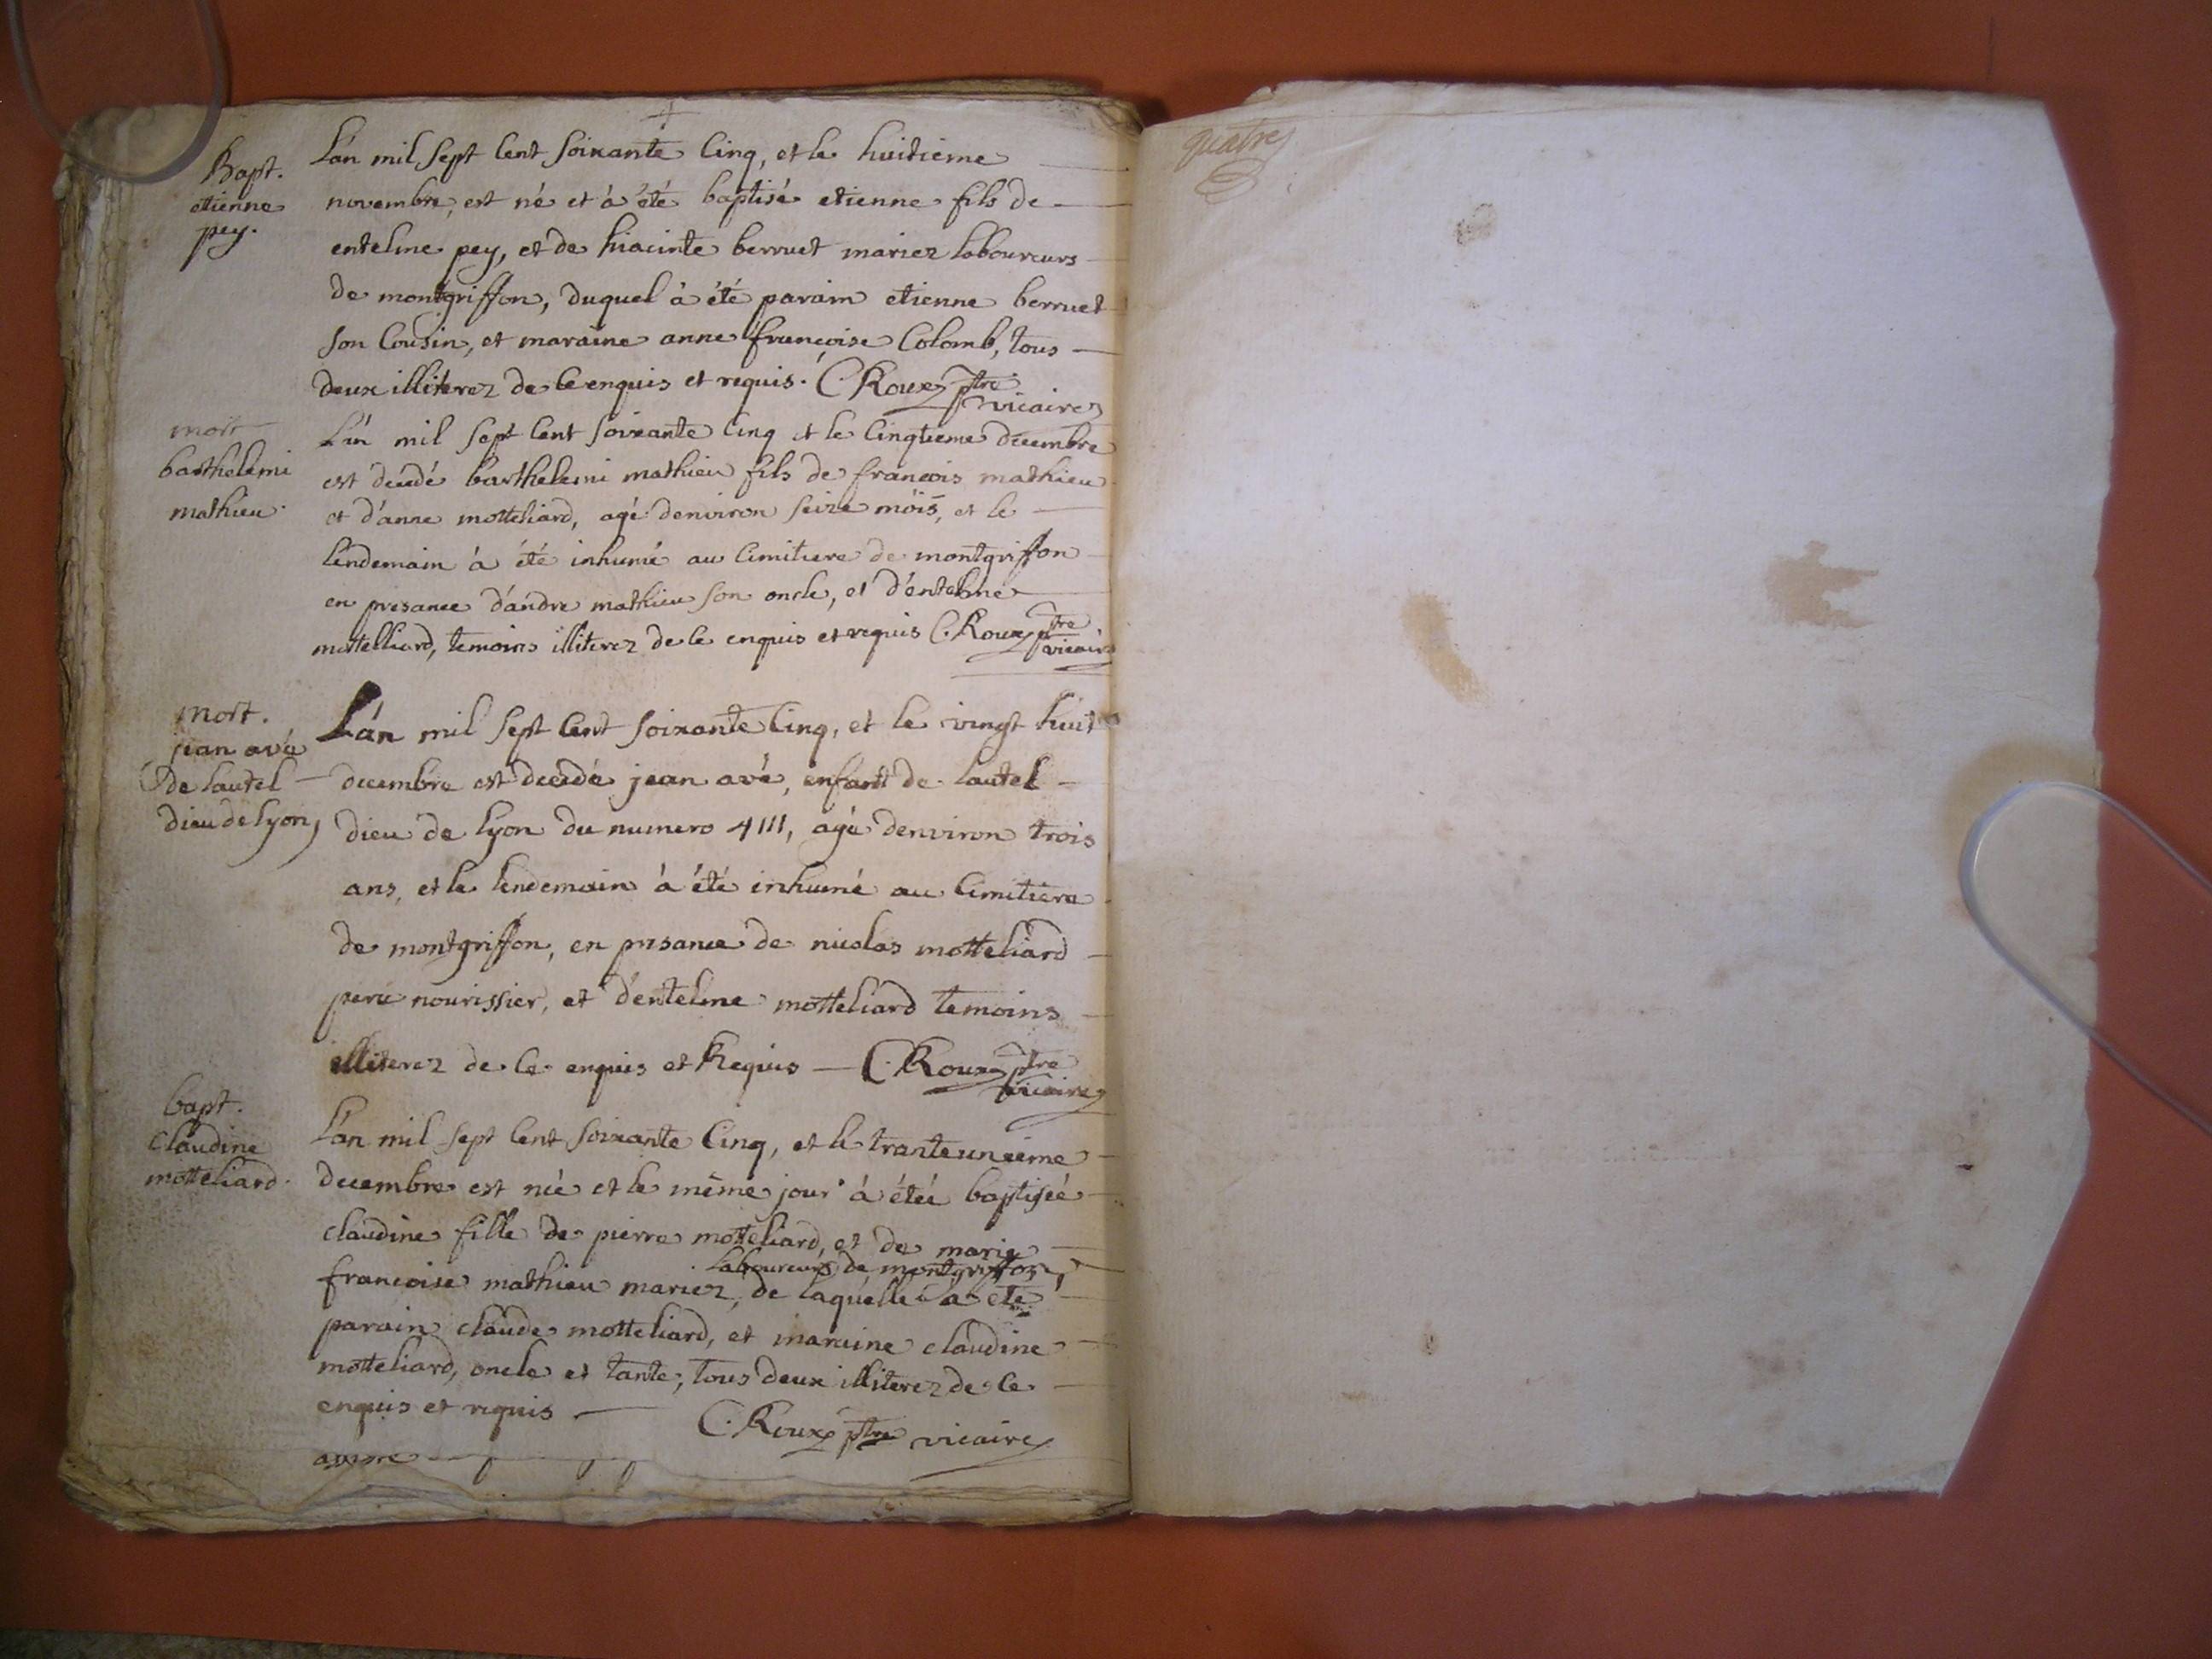 Bapt.
etienne
pey.
L'an mil sept Cent soixante Cinq, et le huitieme
novembre, est né et à été baptisé etienne fils de
entelme pey, et de hiacinte berruet mariez laboureurs
de montgriffon, duquel à été parain etienne berruet
son Cousin, et maraine anne françoise Colomb, tous
deux illiterez de Ce enquis et requis. C. Roux ptre
vicaire
mort
barthelemi
mathieu.
L'an mil sept Cent soixante Cinq et le Cinqtieme decembre
est decedé barthelemi mathieu fils de francois mathieu
et d'anne motteliard, agé denviron seize mois, et le
lendemain à été inhumé au Cimitiere de montgriffon
en presance d'andre mathieu son oncle, et d'entelme
mottelliard, temoins illiterez de Ce enquis et requis C. Roux ptre
vicaire
mort.
jean avé
de lautel
dieu de lyon
L'an mil sept Cent soixante Cinq, et le vingt huit
decembre est decedé jean avé, enfant de lautel
dieu de lyon du numero 4111, agé denviron trois
ans, et le lendemain à été inhumé au Cimitiere
de montgriffon, en presance de nicolas motteliard
pere nourissier, et d'entelme motteliard temoins
illiterez de Ce enquis et Requis C. Roux ptre
vicaire
bapt.
Claudine
motteliard.
L'an mil sept Cent soixante Cinq, et le tranteunieme
decembre est née et le même jour à étée baptisée
claudine fille de pierre motteliard, et de marie
laboureurs de montgriffon,
francoise mathieu mariez, de laquelle à été
parain claude motteliard, et maraine claudine
motteliard, oncle et tante, tous deux illiterez de Ce
enquis et requis C. Roux ptre vicaire
quatre